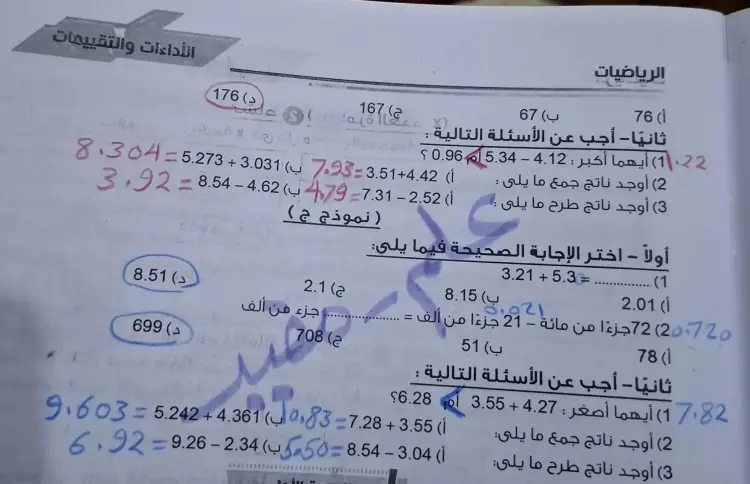 الأداءات والتقييمات
الرياضيات
أ) 76 ب) 67 ج) 167 د) 176
ثانيًا- أجب عن الأسئلة التالية :
1) أيهما أكبر : 4.12 – 5.34 أم 0.96 ؟ 1.22
2) أوجد ناتج جمع ما يلى: أ) 3.51+4.42 =7.93 ب) 5.273 + 3.031 =8.304
3) أوجد ناتج طرح ما يلى: أ) 7.31 – 2.52 =4.79 ب) 8.54 – 4.62 =3.92
( نموذج ج )
أولاً – اختر الإجابة الصحيحة فيما يلى:
1) .............. = 3.21 + 5.3
أ) 2.01 ب) 8.15 ج) 2.1 د) 8.51
2) 72جزءًا من مائة – 21 جزءًا من ألف = .............. جزء من ألف
0.720 0.021
أ) 78 ب) 51 ج) 708 د) 699
ثانيًا- أجب عن الأسئلة التالية :
1) أيهما أصغر : 4.27 + 3.55 أم 6.28؟ 7.82
2) أوجد ناتج جمع ما يلى: أ) 7.28 + 3.55 =10.83 ب) 5.242 + 4.361 =9.603
3) أوجد ناتج طرح ما يلى: أ) 8.54 – 3.04 =5.50 ب) 9.26 – 2.34 =6.92
علم-مفيد